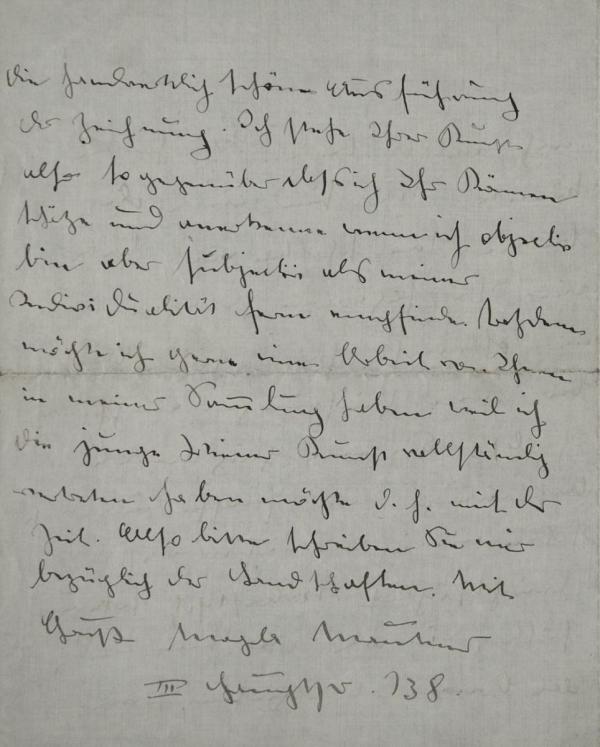 die handwerklich schöne Ausführung
der Zeichnung. Ich stehe Ihrer Kunst
also so gegenüber daß ich Ihr Können
schätze und anerkenne wenn ich objectiv
bin aber subjectiv als meiner
Individualität fern empfinde. Trotzdem
möchte ich gerne eine Arbeit von Ihnen
in meiner Sammlung haben weil ich
die junge Wiener Kunst vollständig
vertreten haben möchte d. h. mit der
Zeit. Also bitte schreiben Sie mir
bezüglich der Landschaften. Mit
Gruß Magda Mautner
III Hauptstr. 138.